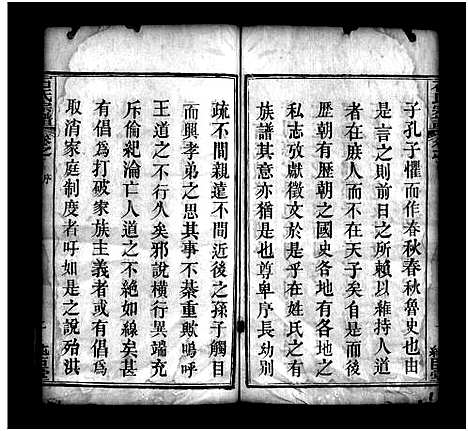 子孔子懼而作春秋春秋魯史也由
是言之則前日之所賴以維持人道
而不在庶人而不在天子矣自時厥後
歷朝有歷朝之國史各地有各地之
私志攷獻徵文於是乎在姓氏之有
族譜其意亦猶是也尊卑序長幼別
疏不間親遠不間近後之孫子觸目
而興孝弟之思其事不綦重歟嗚呼
王道之不行久矣邪說橫行異端充
斥倫紀淪亡人道之不絶如線矣甚
有倡爲打破家族主義者或有倡爲
取消家庭制度者吁如是之說殆淇
石氏宗譜
卷之一
序